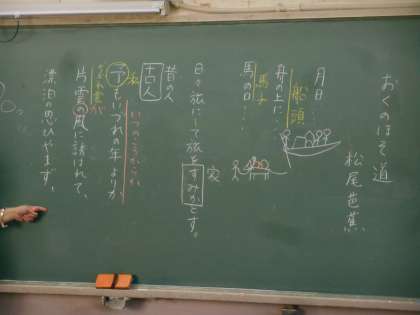 おくのほそ道
松尾芭蕉
月日…
船頭
舟の上に…
馬子
馬の口…
日々旅にして旅をすみかとす。
家
昔の人
古人
私
予もいづれの年よりか、
いつのころからか
ちぎれ雲が
片雲の風に誘はれて、
漂泊の思ひやまず、